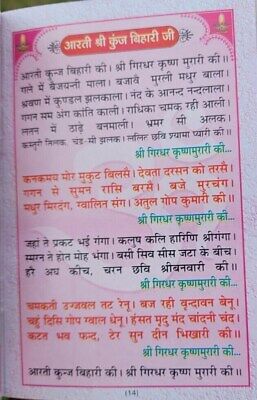 आरती श्री कुंज बिहारी जी
आरती कुन्ज बिहारी की। श्री गिरधर कृष्ण मुरारी की।।
गले में बैजयन्ती माला। बजावै मुरली मधुर बाला।
श्रवण में कुण्डल झलकाला। नंद के आनन्द नन्दलाला।
गगन सम अंग कांति काली। राधिका चमक रही आली।
लतन में ठाढ़े बनमाली। भ्रमर सी अलक
कस्तूरी तिलक, चन्द्र-सी झलक। ललित छवि श्यामा प्यारी की।।
श्री गिरधर कृष्णमुरारी की...
कनकमय मोर मुकुट बिलसै। देवता दरसन को तरसै।
गगन से सुमन रासि बरसै। बजे मुरचंग।
मधुर मिरदंग, ग्वालिन संग। अतुल गोप कुमारी की।।
श्री गिरधर कृष्णमुरारी की...
जहां ते प्रकट भई गंगा। कलुष कलि हारिणि श्रीगंगा।
स्मरन ते होत मोह भंगा। बसी सिव सीस जटा के बीच।
हरै अघ कीच, चरन छवि श्रीबनवारी की।।
श्री गिरधर कृष्णमुरारी की...
चमकती उज्जवल तट रेनू। बज रही वृन्दावन बेनू।
चहुं दिसि गोप ग्वाल धेनू। हंसत मृदु मंद चांदनी चंद।
कटत भव फन्द, टेर सुन दीन भिखारी की।।
श्री गिरधर कृष्णमुरारी की...
आरती कुन्ज बिहारी की। श्री गिरधर कृष्ण मुरारी की।।
(14)